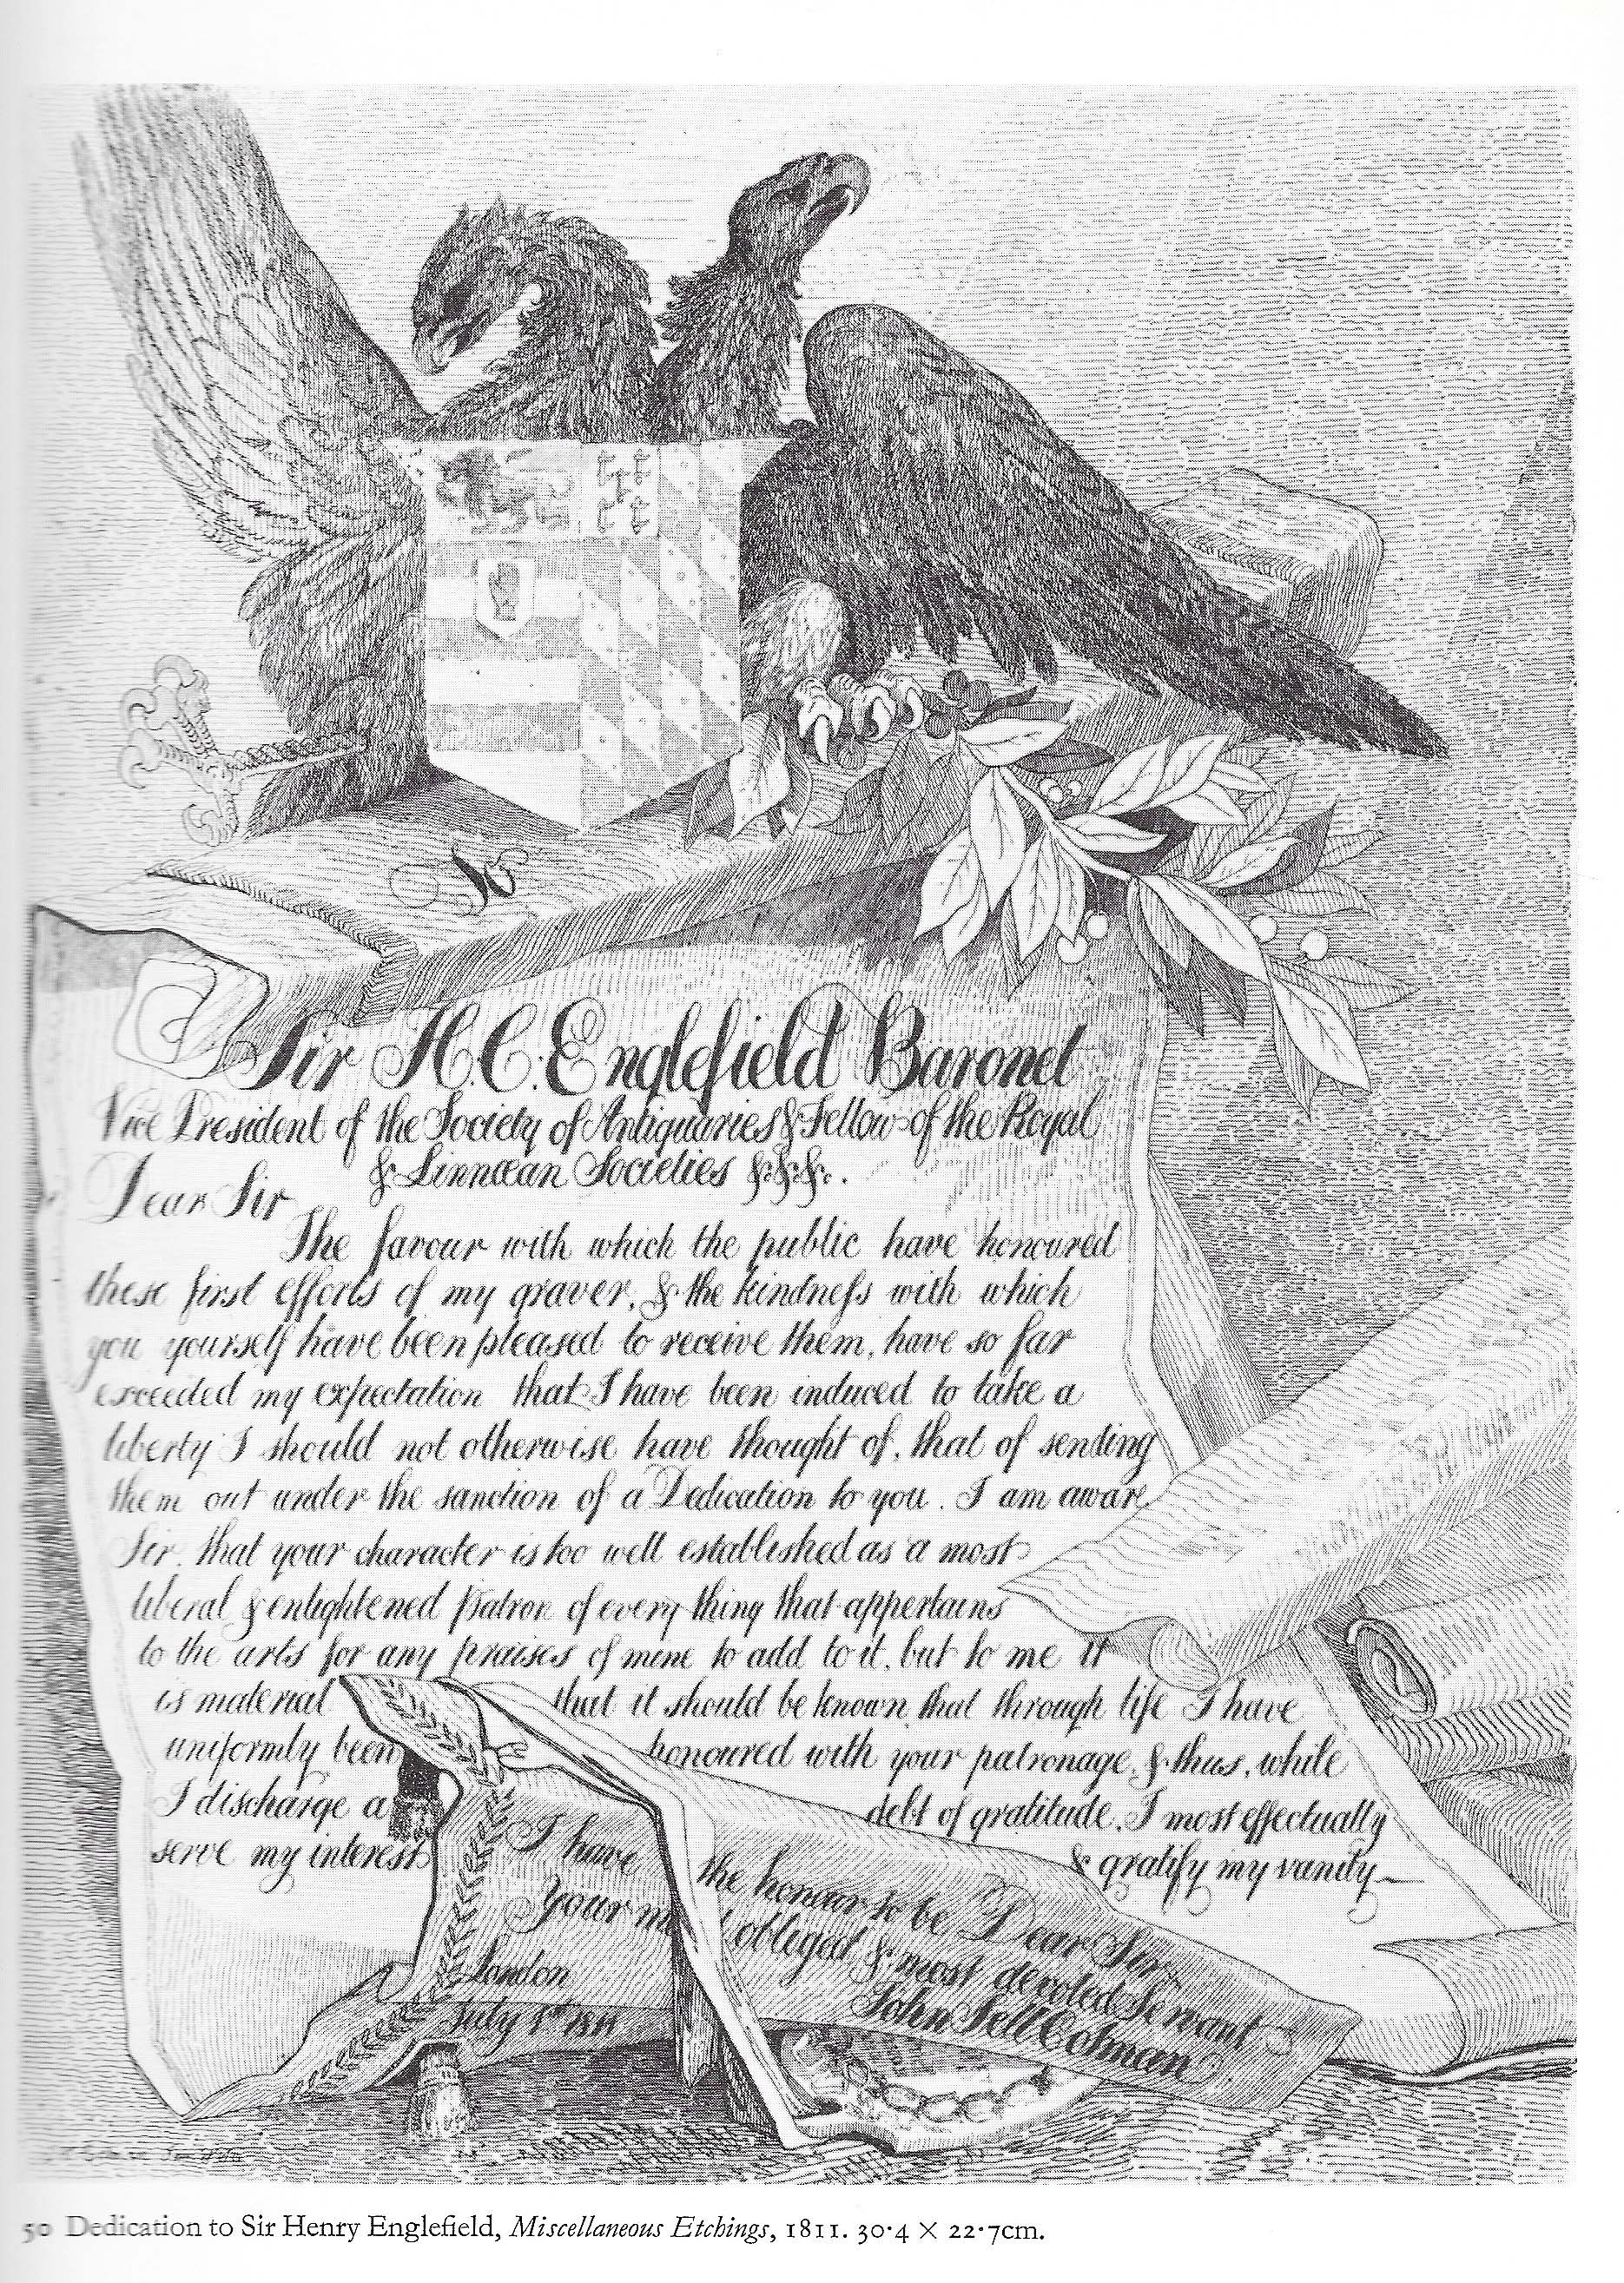 To
Sir H.C. Englefield Baronet
Vice President of the Society of Antiquaries & Fellow of the Royal
& Linnæan Societies &c&c&c.
Dear Sir
The favour with which the public have honoured
these first efforts of my graver, & the kindneſs with which
you yourself have been pleased to receive them, have so far
exceeded my expectation that I have been induced to take a
liberty I should not otherwise have thought of, that of sending
them out under the sanction of a Dedication to you. I am aware
Sir, that your character is too well established as a most
liberal & enlightened Patron of every thing that appertains
to the arts for any praises of mine to add to it, but to me it
is material that it should be known that through life I have
uniformly been honoured with your patronage, & thus, while
I discharge a debt of gratitude, I most effectually
serve my interest & gratify my vanity
I have the honour to be Dear Sir
Your obliged & most devoted Servant
John Sell Cotman
London
July 1st 1811
50 Dedication to Sir Henry Englefield, Miscellaneous Etchings, 1811. 30·4 × 22·7cm.